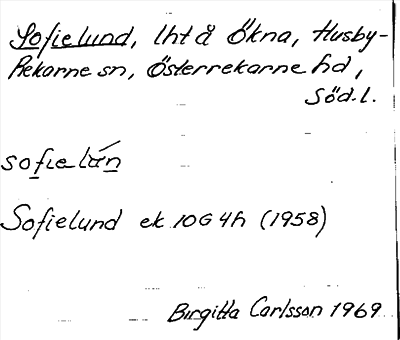 Sofielund, lht å Ökna, Husby-
Rekarne sn, Österrekarne hd,
Söd.l.
sofielán
Sofielund ek 10G4h (1958)
Birgitta Carlsson 1969